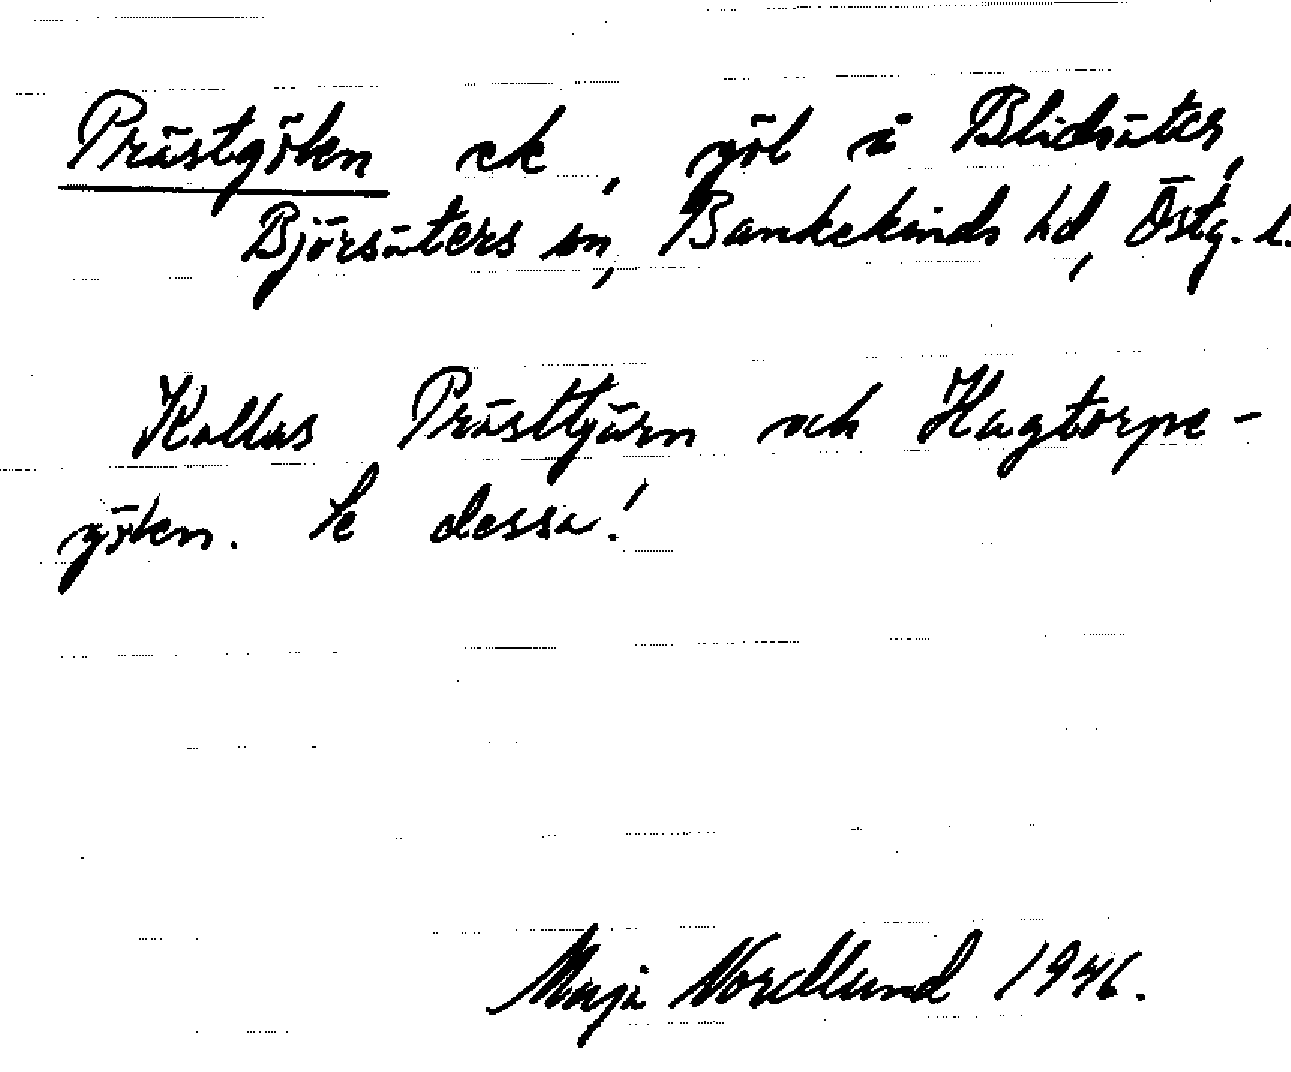 Prästgölen ek, göl i Blidsäter,
Björsäters sn, Bankekinds hd, Östg. l.
Kallas Prästtjärn och Hagtorpe-
gölen. Se dessa!
Maja Nordlund 1946.